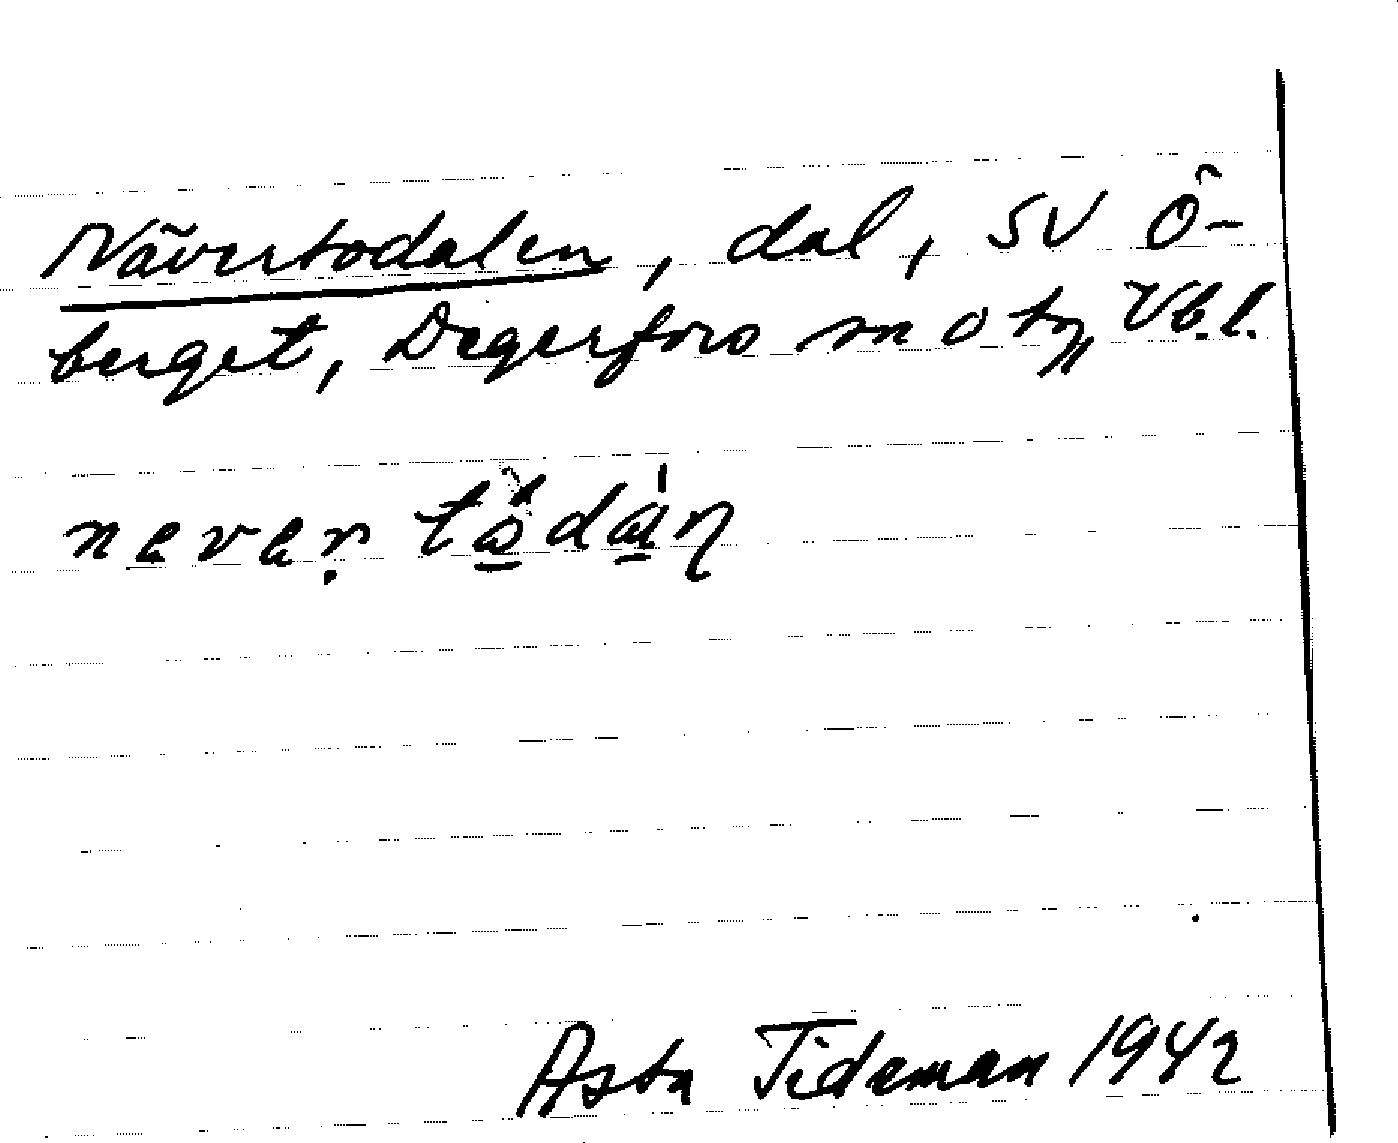 Nävertodalen, dal, SV Ö-
berget, Degerfors sn o tg, Vb.l.
never tådán
Asta Tideman 1942